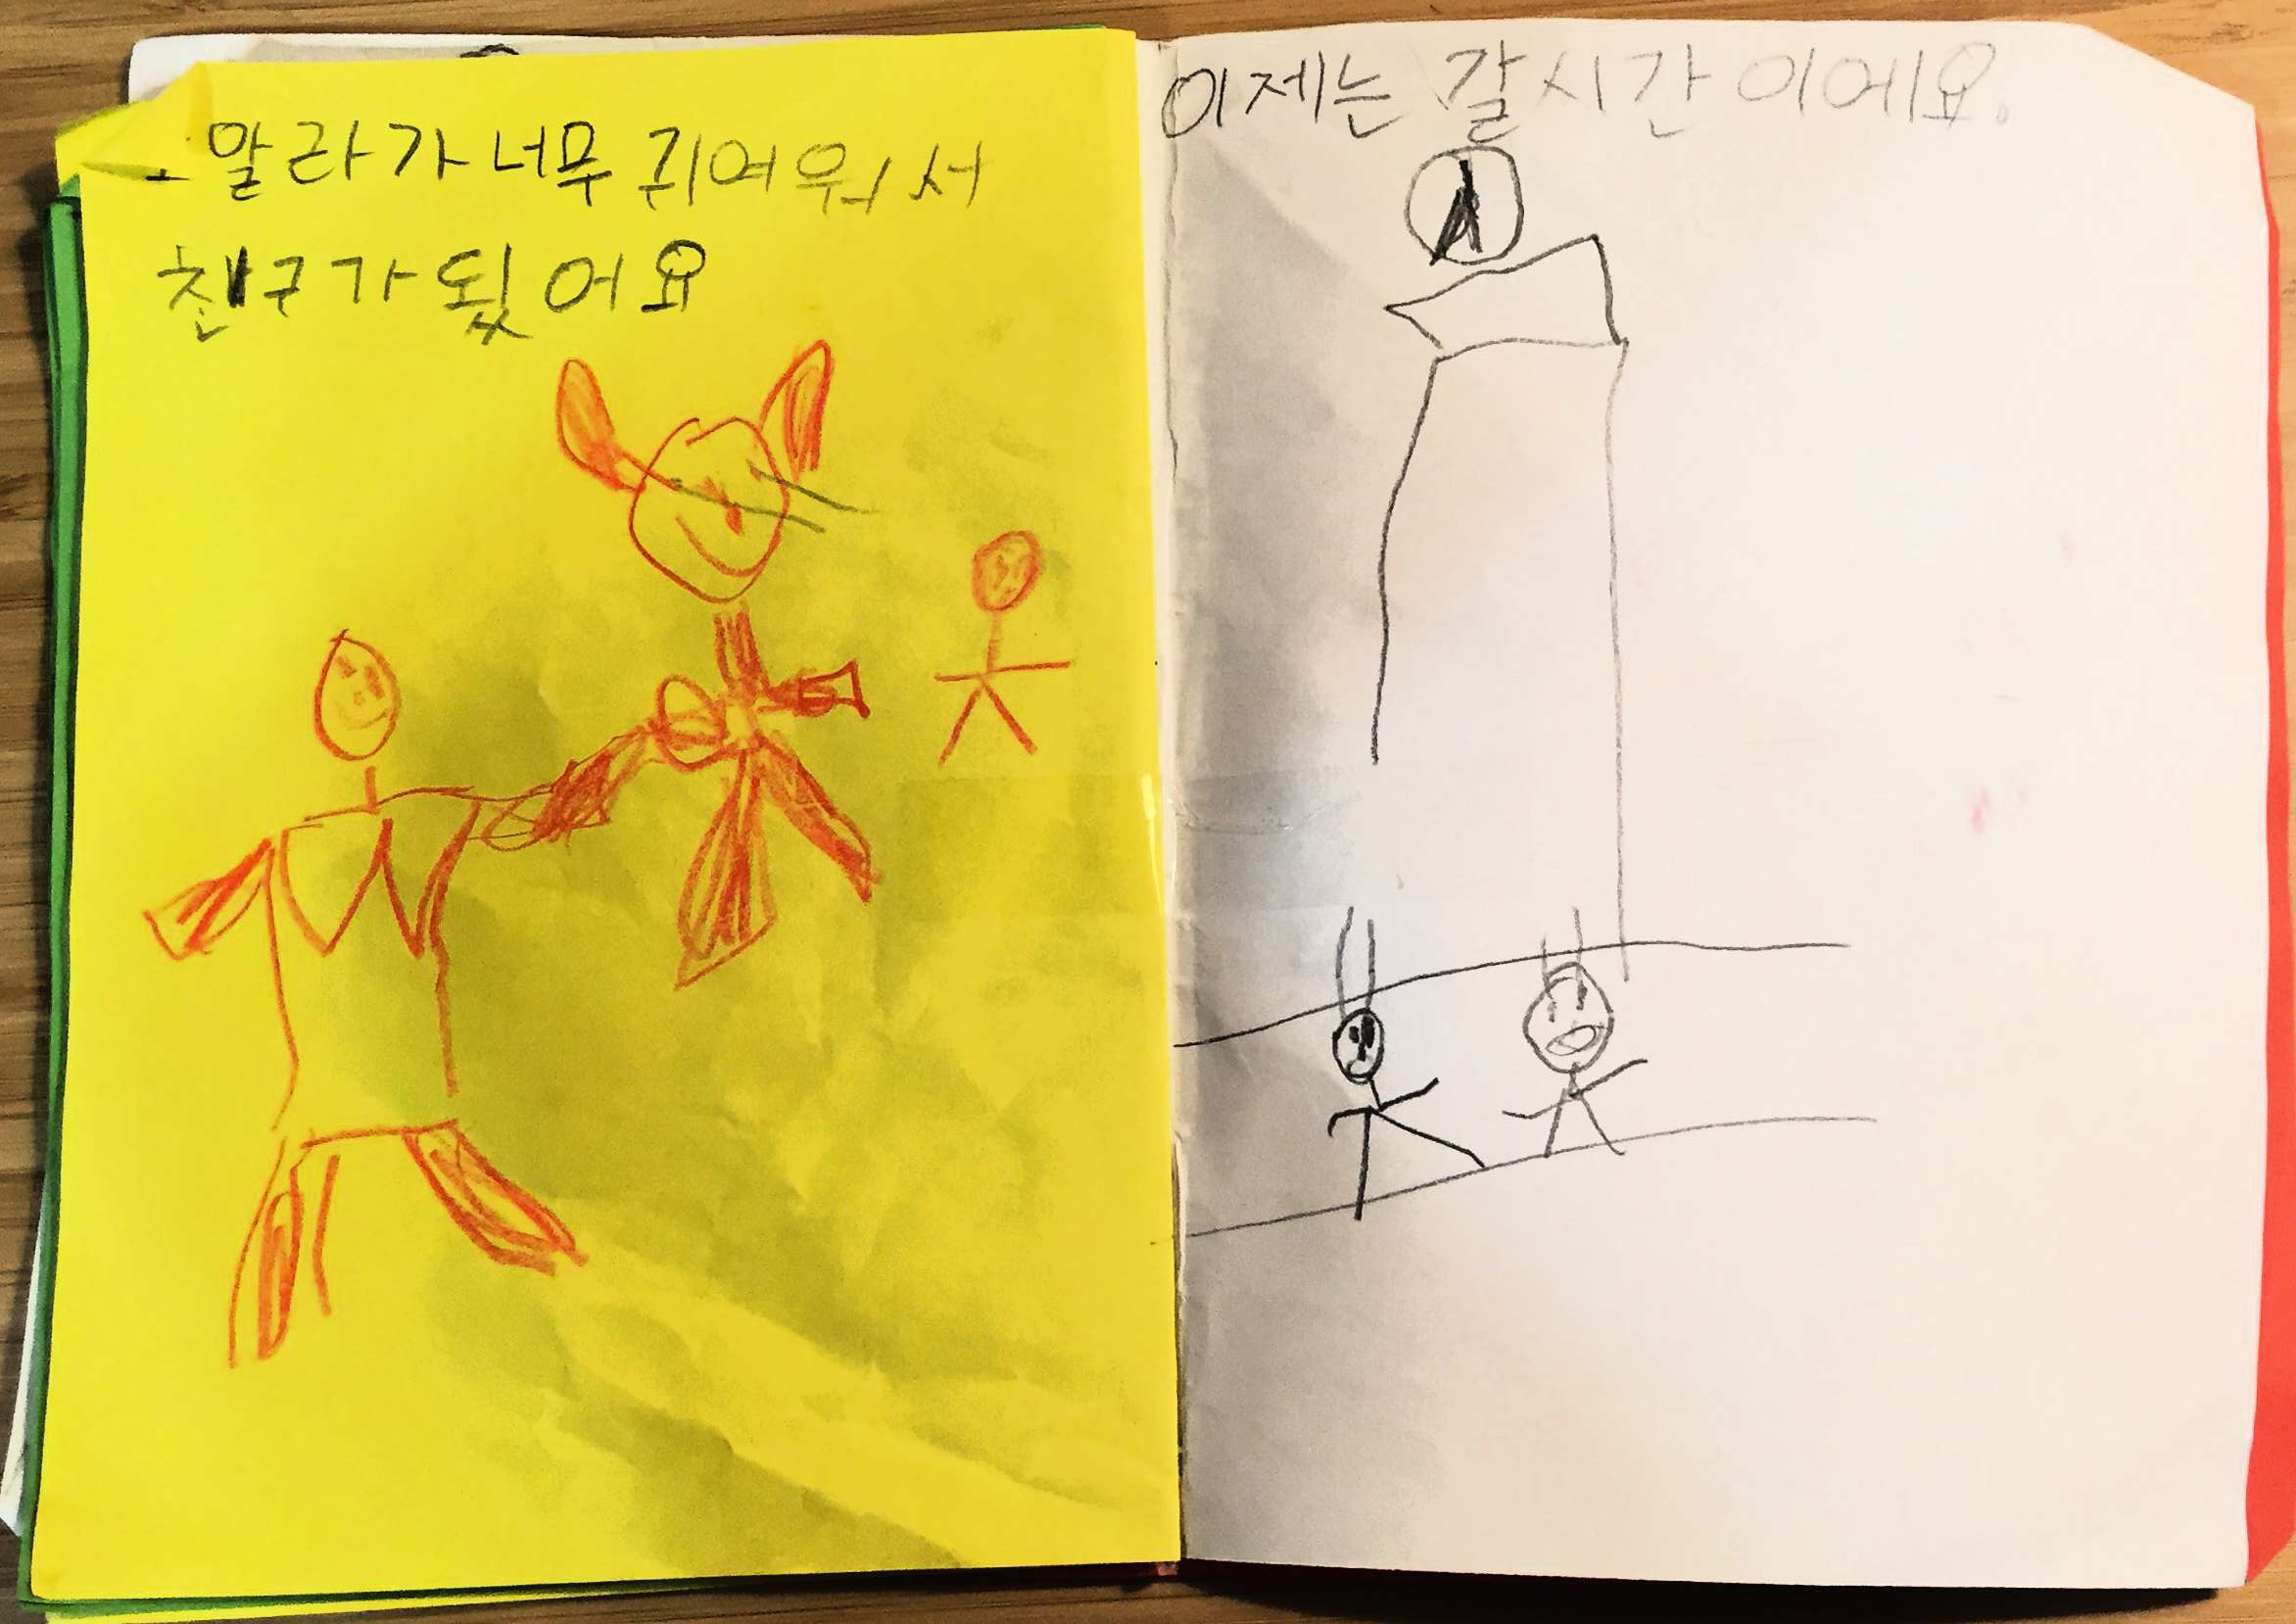 말라가 너무 귀여워서
친구가 됬어요
이제는 갈 시간이에요.